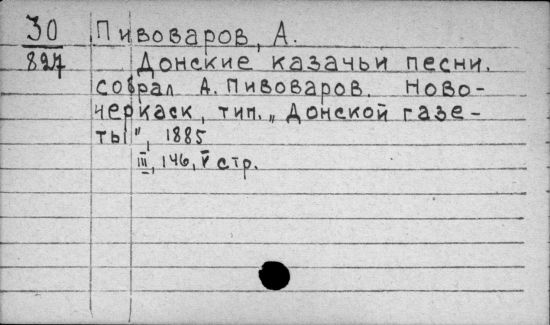 30 Пивоваров, А.
827 Донские казачьи песни.
собрал А. Пивоваров. Ново-
черкаск, тип. „Донской газе-
ты", 1885
III, 146, V стр.